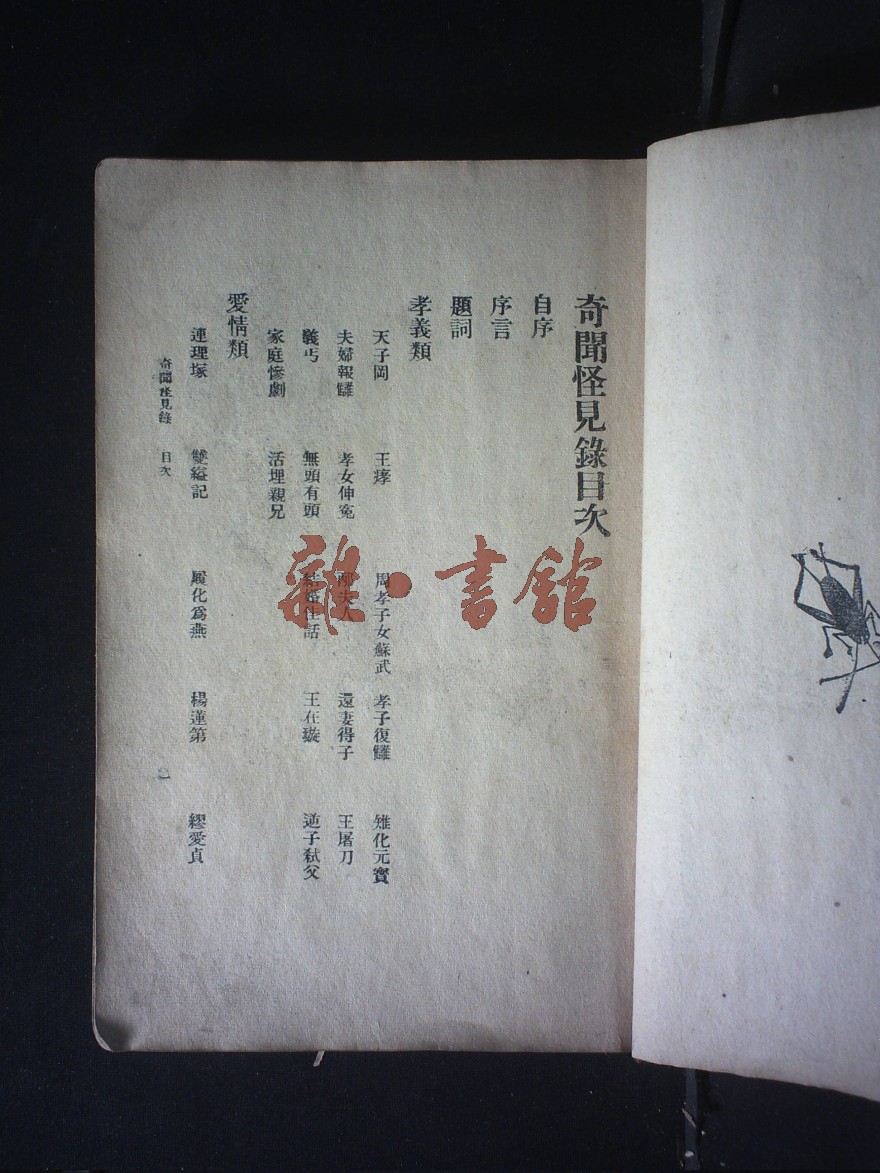 奇聞怪見錄目次
自序
序言
題詞
孝義類
天子岡 王孝 周孝子女蘇武 孝子復讎 雉化元寶
夫婦報讎 孝女伸冤 夫人 還妻得子 王屠刀
義丐 無頭有頭 結婚佳話 王在璇 逆子弒父
家庭慘劇 活埋親兄
愛情類
連理塚 雙縊記 履化為燕 楊蓮第 繆愛貞
奇聞怪見錄 目次
一
雜·書館